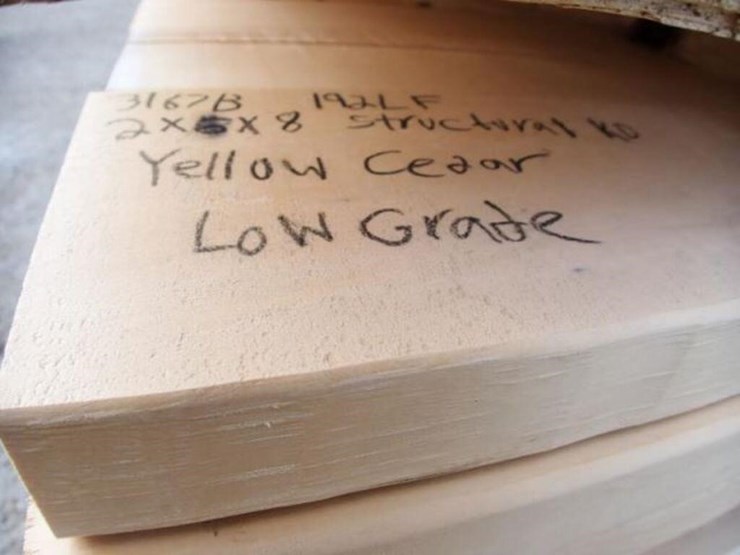 3167B 192LF
2X6X8 structural KD
Yellow Cedar
Low Grade